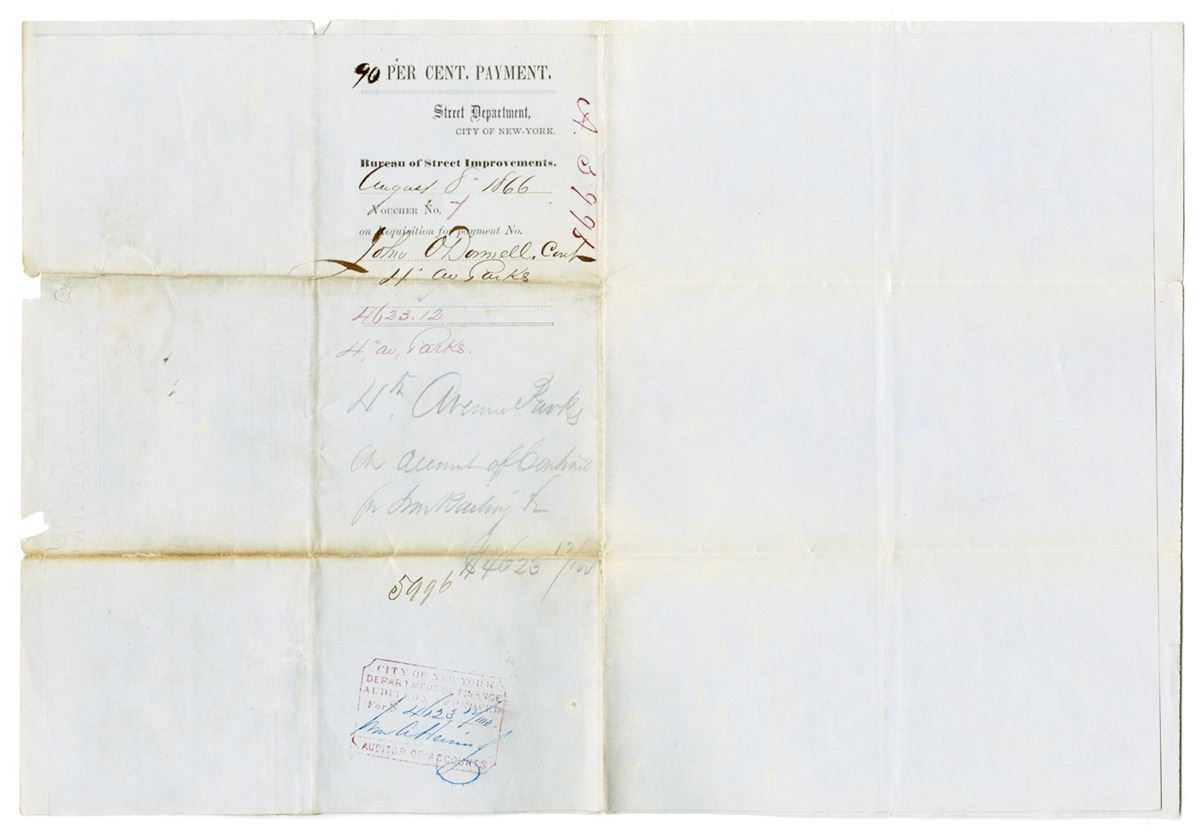 90 PER CENT. PAYMENT.
Street Department,
CITY OF NEW-YORK.
Bureau of Street Improvements.
August 8" 1866
VOUCHER NO. 7
on Requisition for payment No.
John O'Donnell, Cont
4" av Parks
4623.12
4" av, Parks.
4th Avenue Parks
On account of Contract
for Iron Railing &c
$4623 12/100
5996
CITY OF NEW YORK
DEPARTMENT OF FINANCE
AUDITED
For $ 4623 12/100
Wm A Herring
AUDITOR OF ACCOUNTS